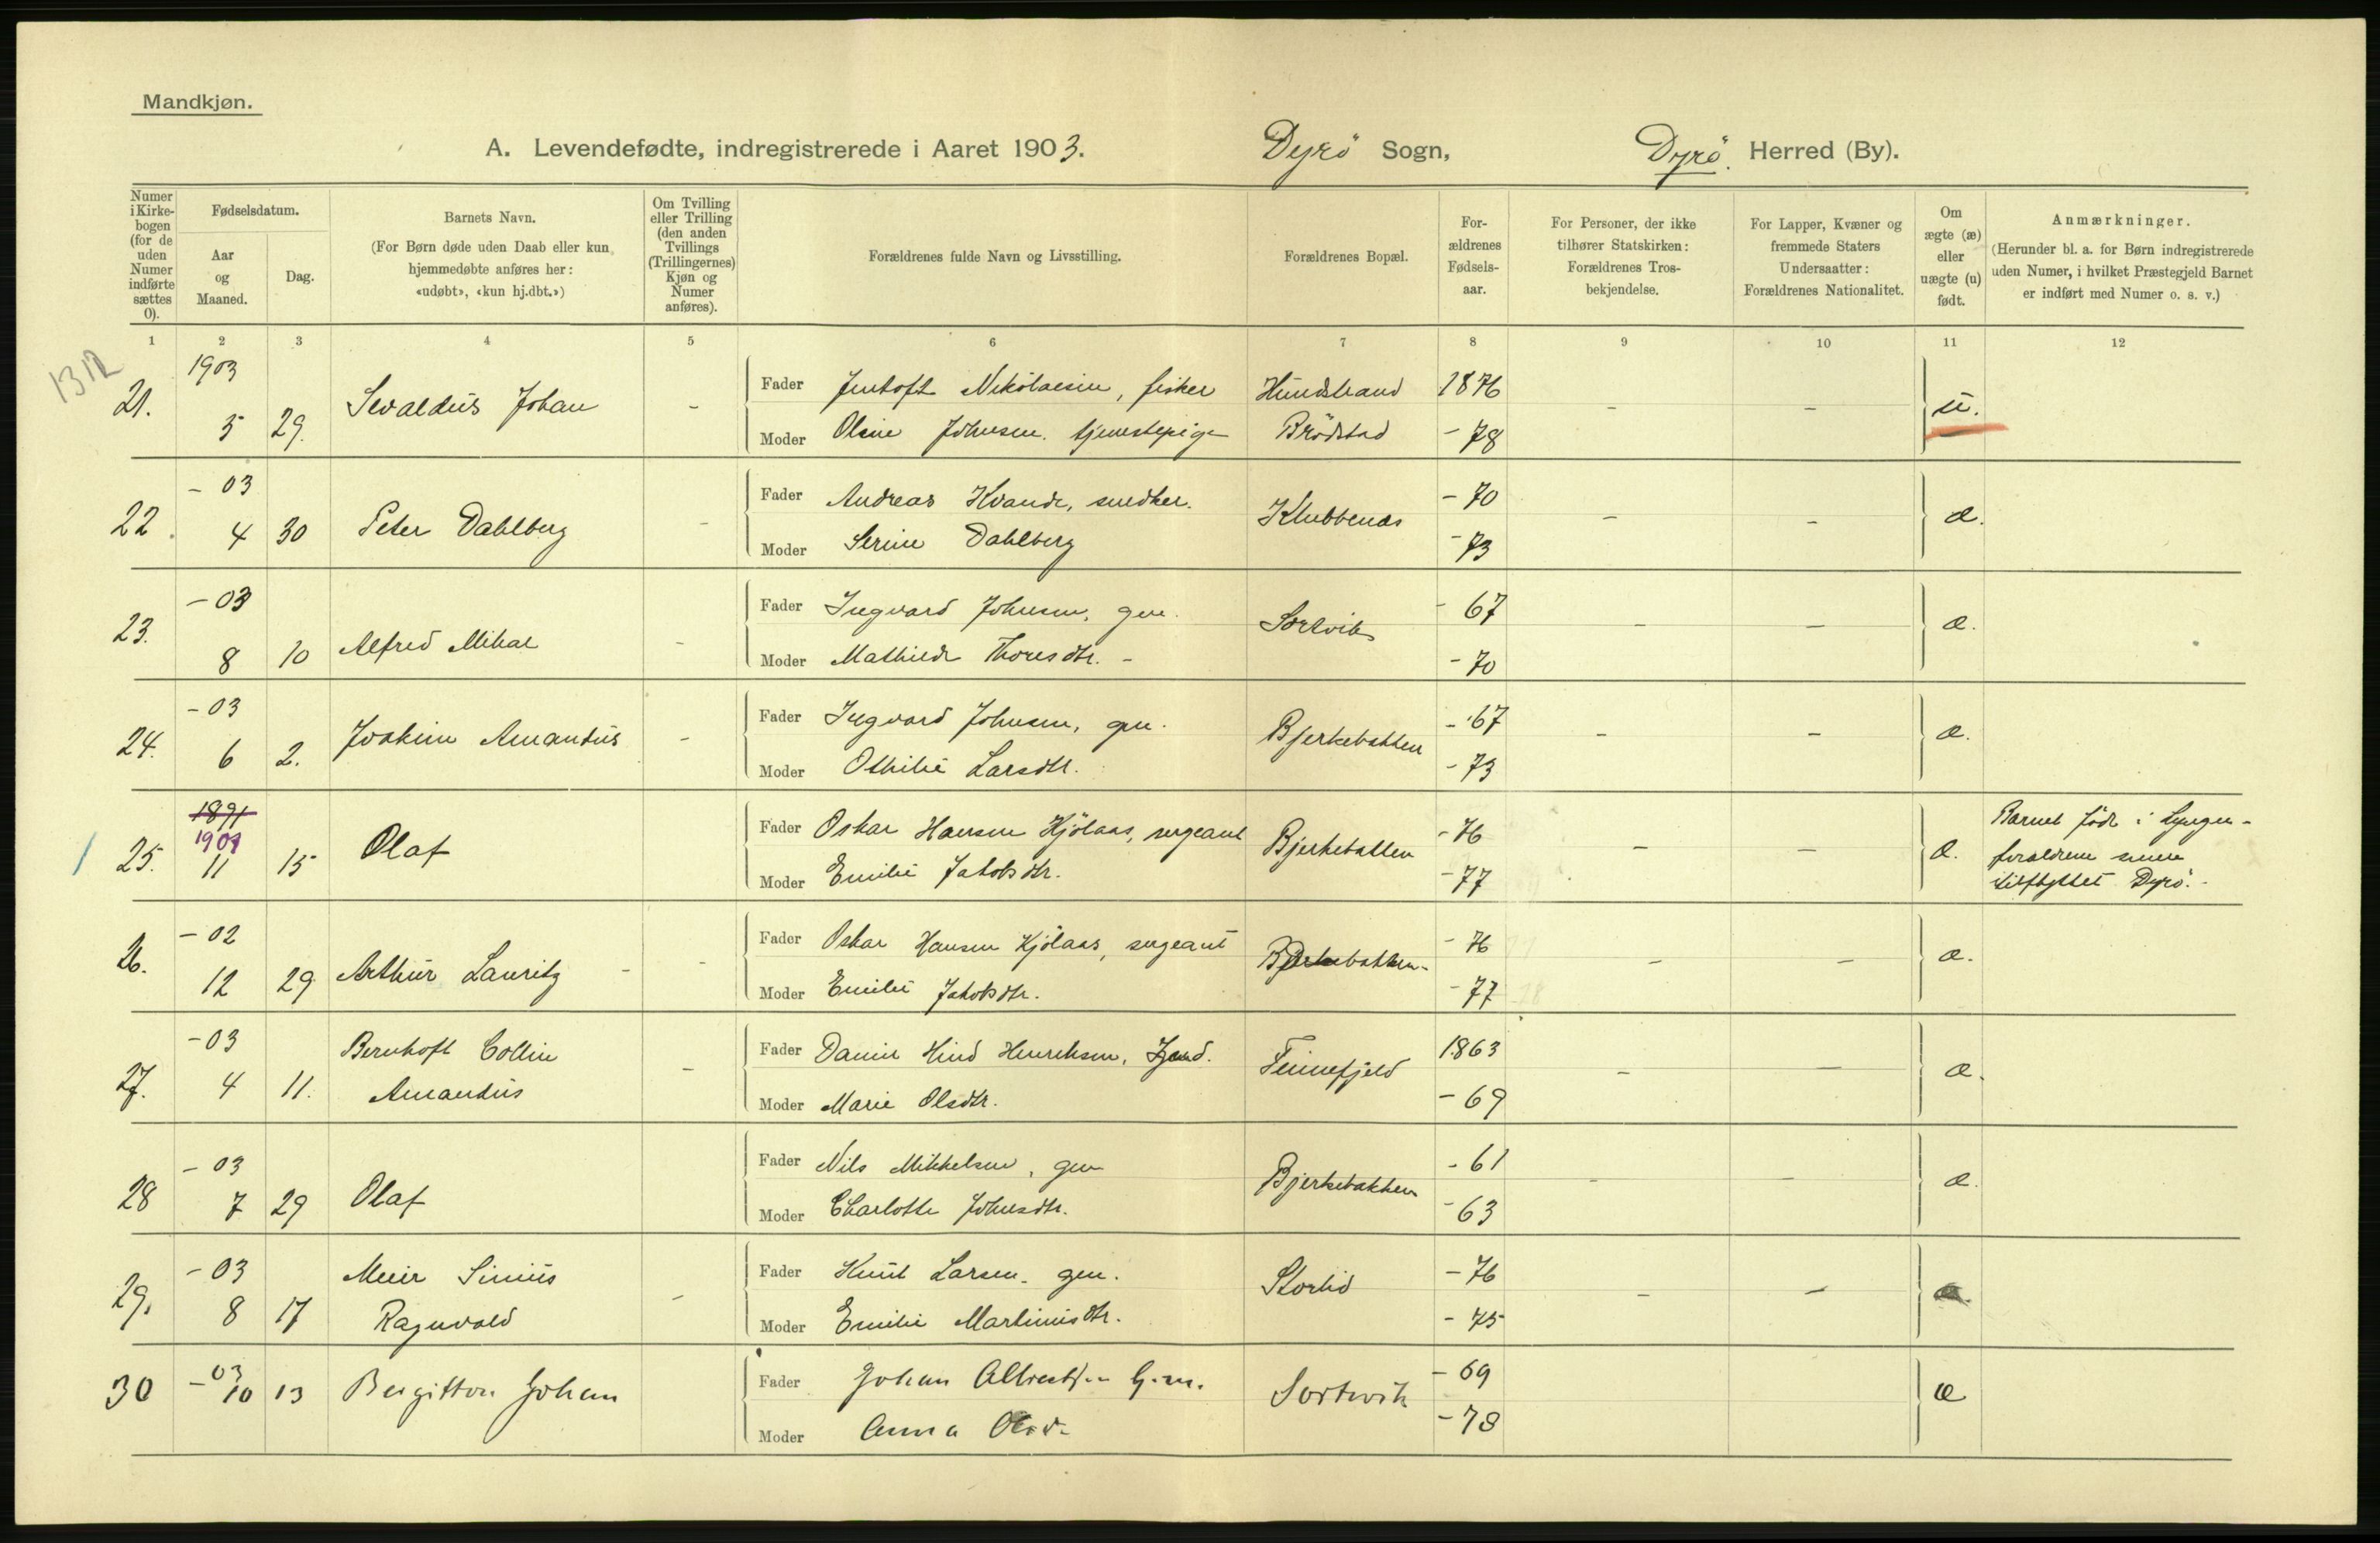 Mandkjøn.
A. Levendefødte, indregistrerede i Aaret 1903. Dyrö Sogn, Dyrö. Herred (By).
Numer i Kirkebogen (for de uden Numer indførte sættes 0).
Fødselsdatum.
Aar og Maaned.
Dag.
Barnets Navn.
(For Børn døde uden Daab eller kun hjemmedøbte anføres her: «udøbt», «kun hj.dbt.»)
Om Tvilling eller Trilling (den anden Tvillings (Trillingernes) Kjøn og Numer anføres).
Forældrenes fulde Navn og Livsstilling.
Forældrenes Bopæl.
Forældrenes Fødselsaar.
For Personer, der ikke tilhører Statskirken: Forældrenes Trosbekjendelse.
For Lapper, Kvæner og fremmede Staters Undersaatter: Forældrenes Nationalitet.
Om ægte (æ) eller uægte (u) født.
Anmærkninger.
(Herunder bl. a. for Børn indregistrerede uden Numer, i hvilket Præstegjeld Barnet er indført med Numer o. s. v.)
1 2 3 4 5 6 7 8 9 10 11 12
1312
21. 1903 5 29. Sevaldus Johan - Fader Jentoft Nikolaisen, fisker Hundstrand 1876 - - u.
Moder Oline Johnsen. tjenestepige Brödstad - 78
22. - 03 4 30 Peter Dahlberg - Fader Andreas Kvande, snedker. Klubbenes - 70 - - æ.
Moder Serine Dahlberg - 73
23. - 03 8 10 Alfred Mikal - Fader Ingvard Johnsen, gm. Sortvik - 67 - - æ.
Moder Mathilde Thoresdtr. - - 70
24. - 03 6 2. Joakim Amandus - Fader Ingvard Johnsen, gm. Bjerkebakken - 67 - - æ.
Moder Othilie Larsdtr. - 73
25. 1891 1901 11 15 Olaf Fader Oskar Hansen Kjölaas, sergeant Bjerkebakken - 76 - - æ. Barnet födt i Lyngen -
Moder Emilie Jakobsdtr. - 77 forældrene senere
tilflyttet Dyrö. -
26. - 02 12 29 Arthur Lauritz - - Fader Oskar Hansen Kjölaas, sergeant Bjerkebakken - - 76 - - æ.
Moder Emilie Jakobsdtr. - 77
27. - 03 4 11. Bernhoft Collin Amandus - Fader Daniel Hind Henriksen, Finnefjeld 1863 - - æ.
Moder Marie Olsdtr. - 69
28 - 03 7 29 Olaf Fader Nils Mikkelsen, gm Bjerkebakken - 61 - - æ.
Moder Charlotte Johnsdtr. - 63
29. - 03 8 17 Meier Sinius Ragnvald - Fader Knut Larsen. gm. Storlid - 76 - - æ.
Moder Emilie Martinusdtr. - 75
30 - 03 10 13 Bergitton Johan Fader Johan Albrectsen G.m. Sortvik - 69 æ
Moder Anna Olsd. - 78